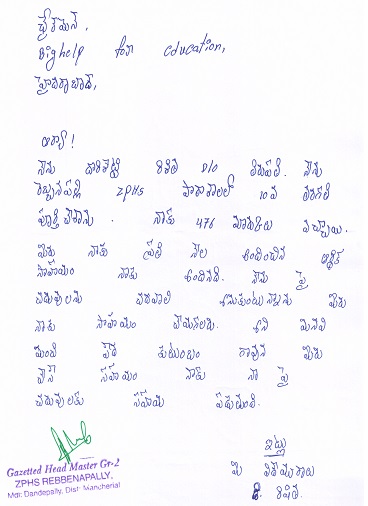 ఛైర్మెన్,
Big help for education,
హైదరాబాద్,
ఆర్యా!
నేను రశిత D/o తిరుపతి. నేను
రెబ్బనపల్లి ZPHS పాఠశాలలో 10వ తరగతి
పూర్తి చేశాను. నాకు 476 మార్కులు వచ్చాయి.
మీరు నాకు ప్రతి నెల అందించిన ఆర్థిక
సాహయం నాకు అందినది. నేను పై
చదువులను చదవాలి అనుకుంటున్నాను మీరు
నాకు సాహయం చేయగలరు. అని మనవి
మాది పేద కుటుంబం కావున మీరు
చేసే సహయం నాకు నా పై
చదువులకు సహయ పడుతుంది.
ఇట్లు
మీ విధేయురాలు
రశిత.
Gazetted Head Master Gr-2
ZPHS REBBENAPALLY.
Mdl: Dandepally, Dist: Mancherial